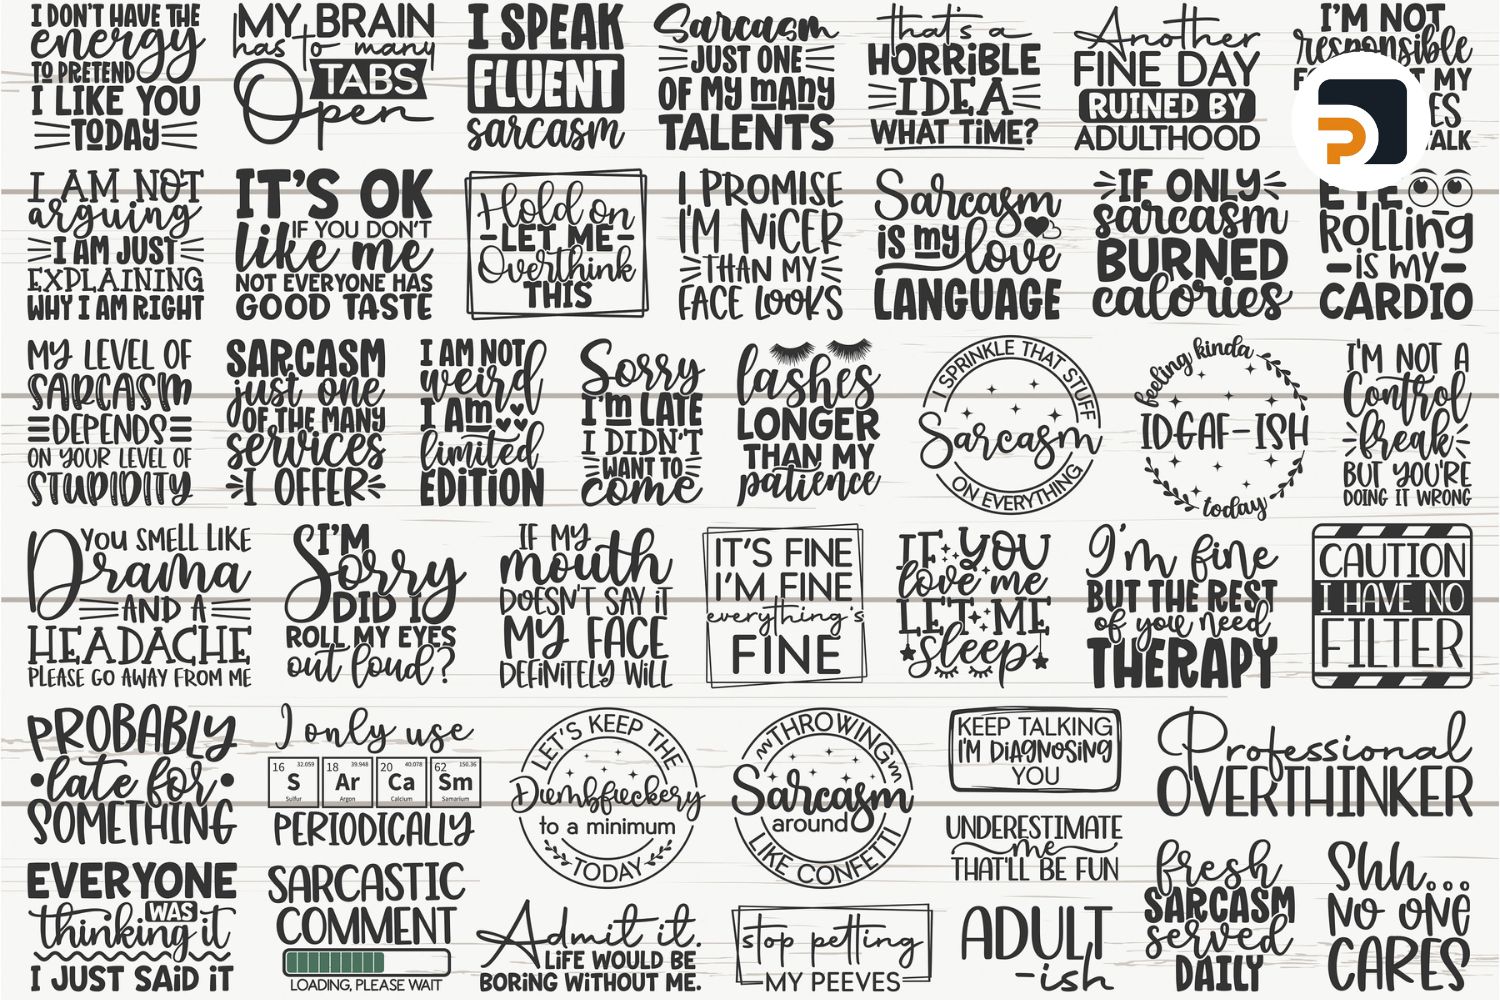 I DON'T HAVE THE
energy
TO PRETEND
I LIKE YOU
TODAY
MY BRAIN
has to many
TABS
Open
I SPEAK
FLUENT
sarcasm
Sarcasm
JUST ONE
OF MY many
TALENTS
that's a
HORRIBLE
IDEA
WHAT TIME?
Another
FINE DAY
RUINED BY
ADULTHOOD
I'M NOT
responsible
MY
ALK
I AM NOT
arguing
I AM JUST
EXPLAINING
WHY I AM RIGHT
IT'S OK
IF YOU DON'T
like me
NOT EVERYONE HAS
GOOD TASTE
Hold on
LET ME
Overthink
THIS
I PROMISE
I'M NICER
THAN MY
FACE LOOKS
Sarcasm
is my
love
LANGUAGE
IF ONLY
sarcasm
BURNED
calories
EYE
Rolling
is my
CARDIO
MY LEVEL OF
SARCASM
DEPENDS
ON YOUR LEVEL OF
STUPIDITY
SARCASM
just one
OF THE MANY
services
I OFFER
I AM NOT
weird
I Am
limited
EDITION
Sorry
I'm LATE
I DIDN'T
WANT TO
come
lashes
LONGER
THAN MY
patience
I SPRINKLE THAT STUFF
Sarcasm
ON EVERYTHING
feeling kinda
IDGAF-ISH
today
I'M NOT A
Control
freak
BUT YOU'RE
DOING IT WRONG
YOU SMELL LIKE
Drama
AND A
HEADACHE
PLEASE GO AWAY FROM ME
I'M
Sorry
DID I
ROLL MY EYES
out loud?
IF MY
mouth
DOESN'T SAY IT
MY FACE
DEFINITELY WILL
IT'S FINE
I'M FINE
everything's
FINE
IF YOU
love me
LET ME
sleep
I'm fine
BUT THE REST
of you need
THERAPY
CAUTION
I HAVE NO
FILTER
PROBABLY
late for
SOMETHING
I only use
16 32.059 18 39.948 20 40.078 62 150.36
S Ar Ca Sm
Sulfur Argon Calcium Samarium
PERIODICALLY
LET'S KEEP THE
Dumbfuckery
to a minimum
TODAY
THROWING
Sarcasm
around
LIKE CONFETTI
KEEP TALKING
I'M DIAGNOSING
YOU
Professional
OVERTHINKER
EVERYONE
WAS
thinking it
I JUST SAID IT
SARCASTIC
COMMENT
LOADING, PLEASE WAIT
Admit it.
LIFE WOULD BE
BORING WITHOUT ME.
stop petting
MY PEEVES
UNDERESTIMATE
me
THAT'LL BE FUN
ADULT
-ish
fresh
SARCASM
served
DAILY
Shh...
NO ONE
CARES